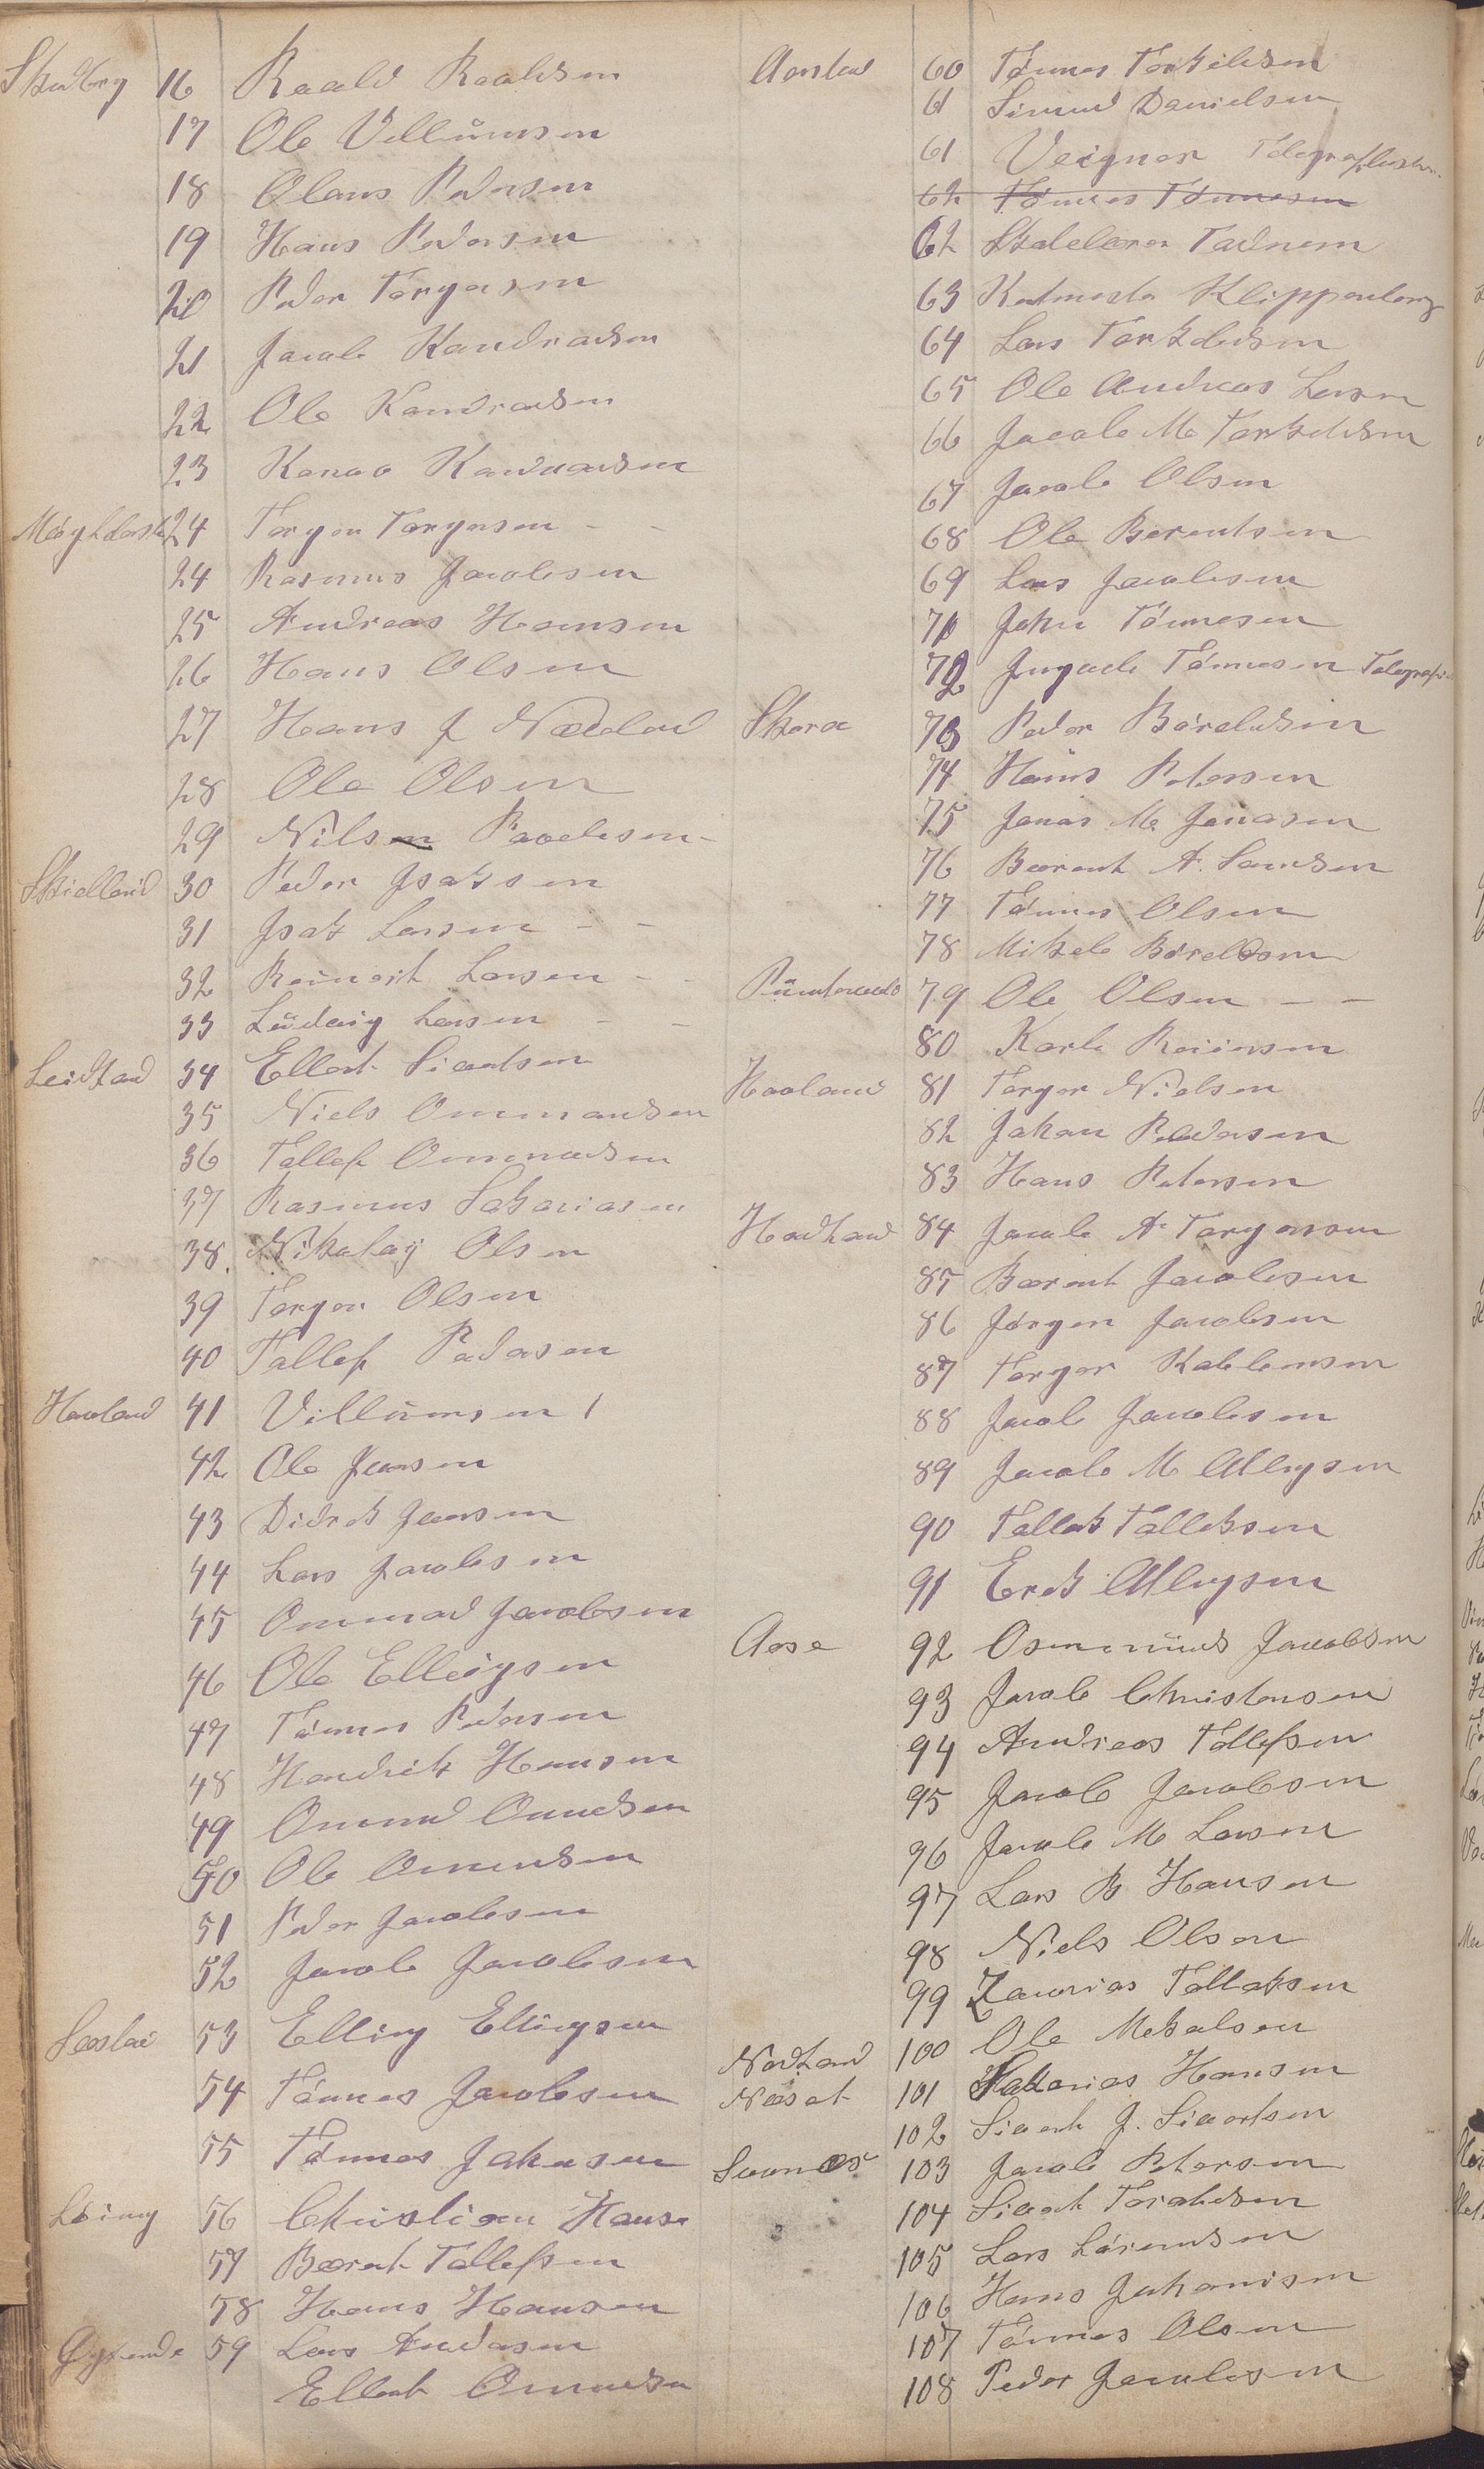 Skadberg 16 Raald Raaldsen
17 Ole Villumsen
18 Olaus Pedersen
19 Hans Pedersen
20 Peder Torgersen
21 Jacob Kandradsen
22 Ole Kandradsen
23 Kanrad Kandradsen
24 Torger Torgersen - -
24 Rasmus Jacobsen
25 Andreas Hansen
26 Hans Olsen
27 Hans J
28 Ole Olsen
29 Nilsen
Skielland 30 Peder Jsaksen
31 Jsak Larsen - -
32 Reinert Larsen - -
33 Ludvig Larsen - -
34 Ellert Sivertsen
35 Niels Ommundsen
36 Tollef Ommundsen
37 Rasmus Sakariasen
38. Nikolaij Olsen
39 Torger Olsen
40 Tollef Pedersen
Havland 41 Villumsen 1
42 Ole Jansen
43 Didrek Jansen
44 Lars Jacobsen
45 Ommund Jacobsen
46 Ole Ellingsen
47 Tönnes Pedersen
48 Hendrik Hansen
49 Omund Omundsen
50 Ole Omundsen
51 Peder Jacobsen
52 Jacob Jacobsen
53 Elling Ellingsen
54 Tönnes Jacobsen
55 Tönnes Johnsen
Löining 56 Christian Hansen
57 Bærent Tollefsen
58 Hans Hansen
59 Lars Andersen
Ellert Omundsen
60 Tönnes Torkildsen
61 Simund Danielsen
61 Veigner
62 Tönnes Tönnesen
62 Skolelærer Tadnem
63 Klippenberg
64 Lars Torkeldsen
65 Ole Andreas Larsen
66 Jacob M Torkeldsen
67 Jacob Olsen
68 Ole Berentsen
69 Lars Jacobsen
71 John Tönnesen
72 Tönnesen
Skara 73 Peder Böreldsen
74 Hans Petersen
75 Jonas M Jonasen
76 Bærent A. Samdsen
77 Tönnes Olsen
78 Mikele Böreldsen
79 Ole Olsen - -
80 Karl Reinersen
Haaland 81 Torger Nielsen
82 Johan Pedersen
83 Hans Petersen
84 Jacob A Torgersen
85 Bærent Jacobsen
86 Jörgen Jacobsen
87 Torger
88 Jacob Jacobsen
89 Jacob M Ellingsen
90 Tollak Tollaksen
91 Erek Ellingsen
Aase 92 Osmund Jacobsen
93 Jacob Christensen
94 Andreas Tollefsen
95 Jacob Jacobsen
96 Jacob M Larsen
97 Lars B Hansen
98 Niels Olsen
99 Zacarias Tollaksen
Nordhand 100 Ole Mekalsen
Næset 101 Sakarias Hansen
102 Sivert J. Sivertsen
103 Jacob Petersen
104 Sivert Toraldsen
105 Lars Lörendsen
106 Hans Johanisen
107 Tönnes Olsen
108 Peder Jacobsen